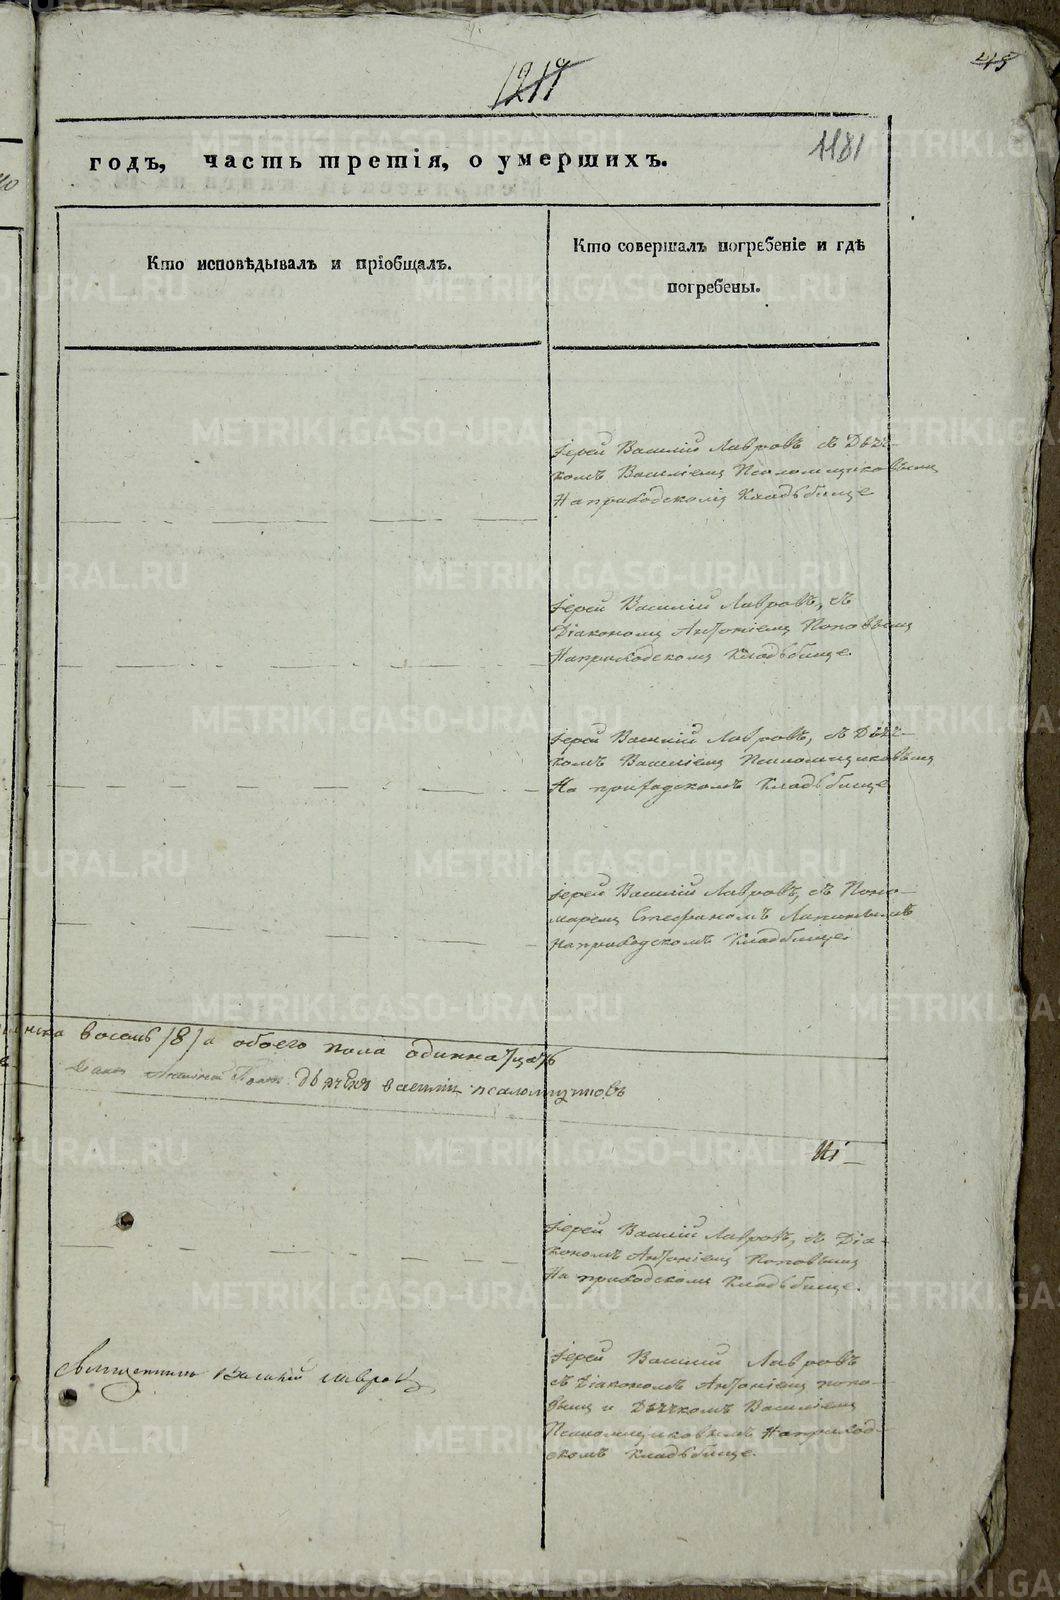 1219
1181
годъ, часть третія, о умершихъ.
Кто исповѣдывалъ и пріобщалъ.
Кто совершалъ погребеніе и гдѣ
погребены.
Іерей Василій Лавровъ съ Дьяч-
комъ Василіемъ Псаломщиковымъ
На приходскомъ Кладьбище
Іерей Василій Лавровъ, съ
Діакономъ Антоніемъ Поповымъ
На приходскомъ Кладьбище.
Іерей Василій Лавровъ, съ Дьяч-
комъ Василіемъ Псаломщиковымъ
На приходскомъ Кладьбище
Іерей Василій Лавровъ, съ Поно-
маремъ Стефаномъ
На приходскомъ Кладбище.
восемь /8/ а обоего пола одиннатцать
Дьячекъ Василій Псаломщиковъ
Іерей Василій Лавровъ, съ Діа-
кономъ Антоніемъ Поповымъ
На приходскомъ Кладьбище.
Священникъ Василій Лавровъ
Іерей Василій Лавровъ
съ Діакономъ Антоніемъ Попо-
вымъ и Дьячкомъ Василіемъ
Псаломщиковымъ На приход-
скомъ Кладьбище.
METRIKI.GASO-URAL.RU